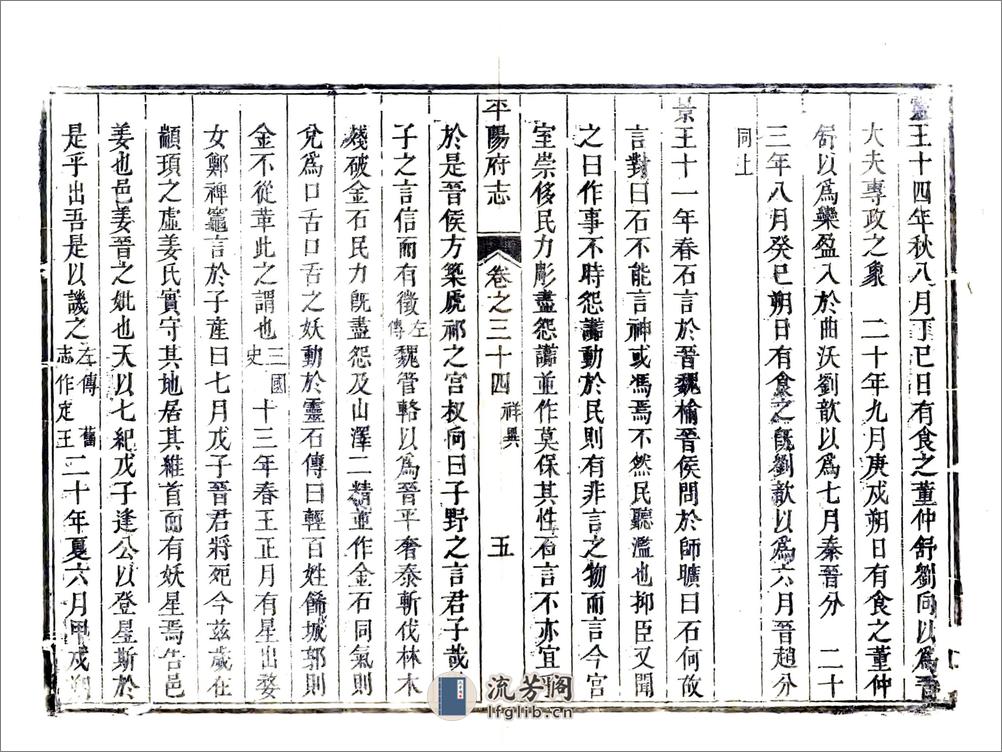 靈王十四年秋八月丁巳日有食之董仲舒劉向以爲晉
大夫專政之象　二十年九月庚戍朔日有食之董仲
舒以爲欒盈入於曲沃劉歆以爲七月秦晉分　二十
三年八月癸巳朔日有食之既劉歆以爲六月晉趙分
同上
景王十一年春石言於晉魏榆晉侯問於師曠曰石何故
言對曰石不能言神或馮焉不然民聽濫也抑臣又聞
之曰作事不時怨讟動於民則有非言之物而言今宮
室崇侈民力彫盡怨讟並作莫保其性石言不亦宜
平陽府志　卷之三十四　祥異　五
於是晉侯方築虒祁之宮叔向曰子野之言君子哉
子之言信而有徵左傳魏管輅以爲晉平奢泰斬伐林木
殘破金石民力既盡怨及山澤二精並作金石同氣則
兌爲口舌口舌之妖動於靈石傳曰輕百姓餙城郭則
金不從革此之謂也三國史十三年春王正月有星出婺
女鄭裨竈言於子產曰七月戍子晉君將死今茲歲在
顓頊之虛姜氏實守其地居其維首而有妖星焉告邑
姜也邑姜晉之妣也天以七紀戍子逢公以登星斯於
是乎出吾是以譏之左傳舊志作定王二十年夏六月甲戍朔
流芳閣
lfglib.cn